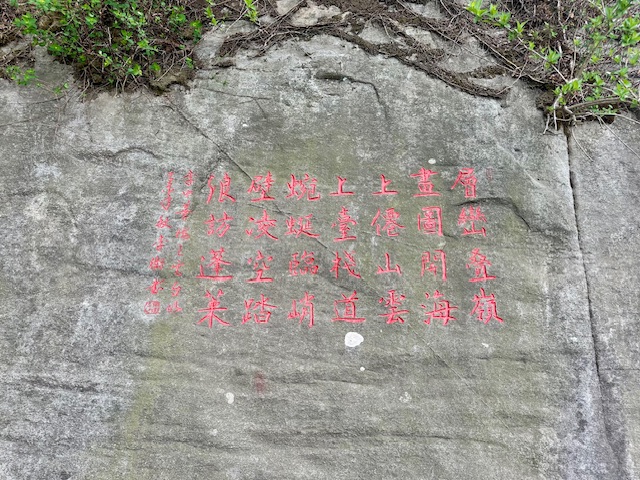 層巒疊嶺
畫圖開海
上僊山雲
上臺棧道
蜿蜒臨峭
壁凌空踏
浪訪蓬萊